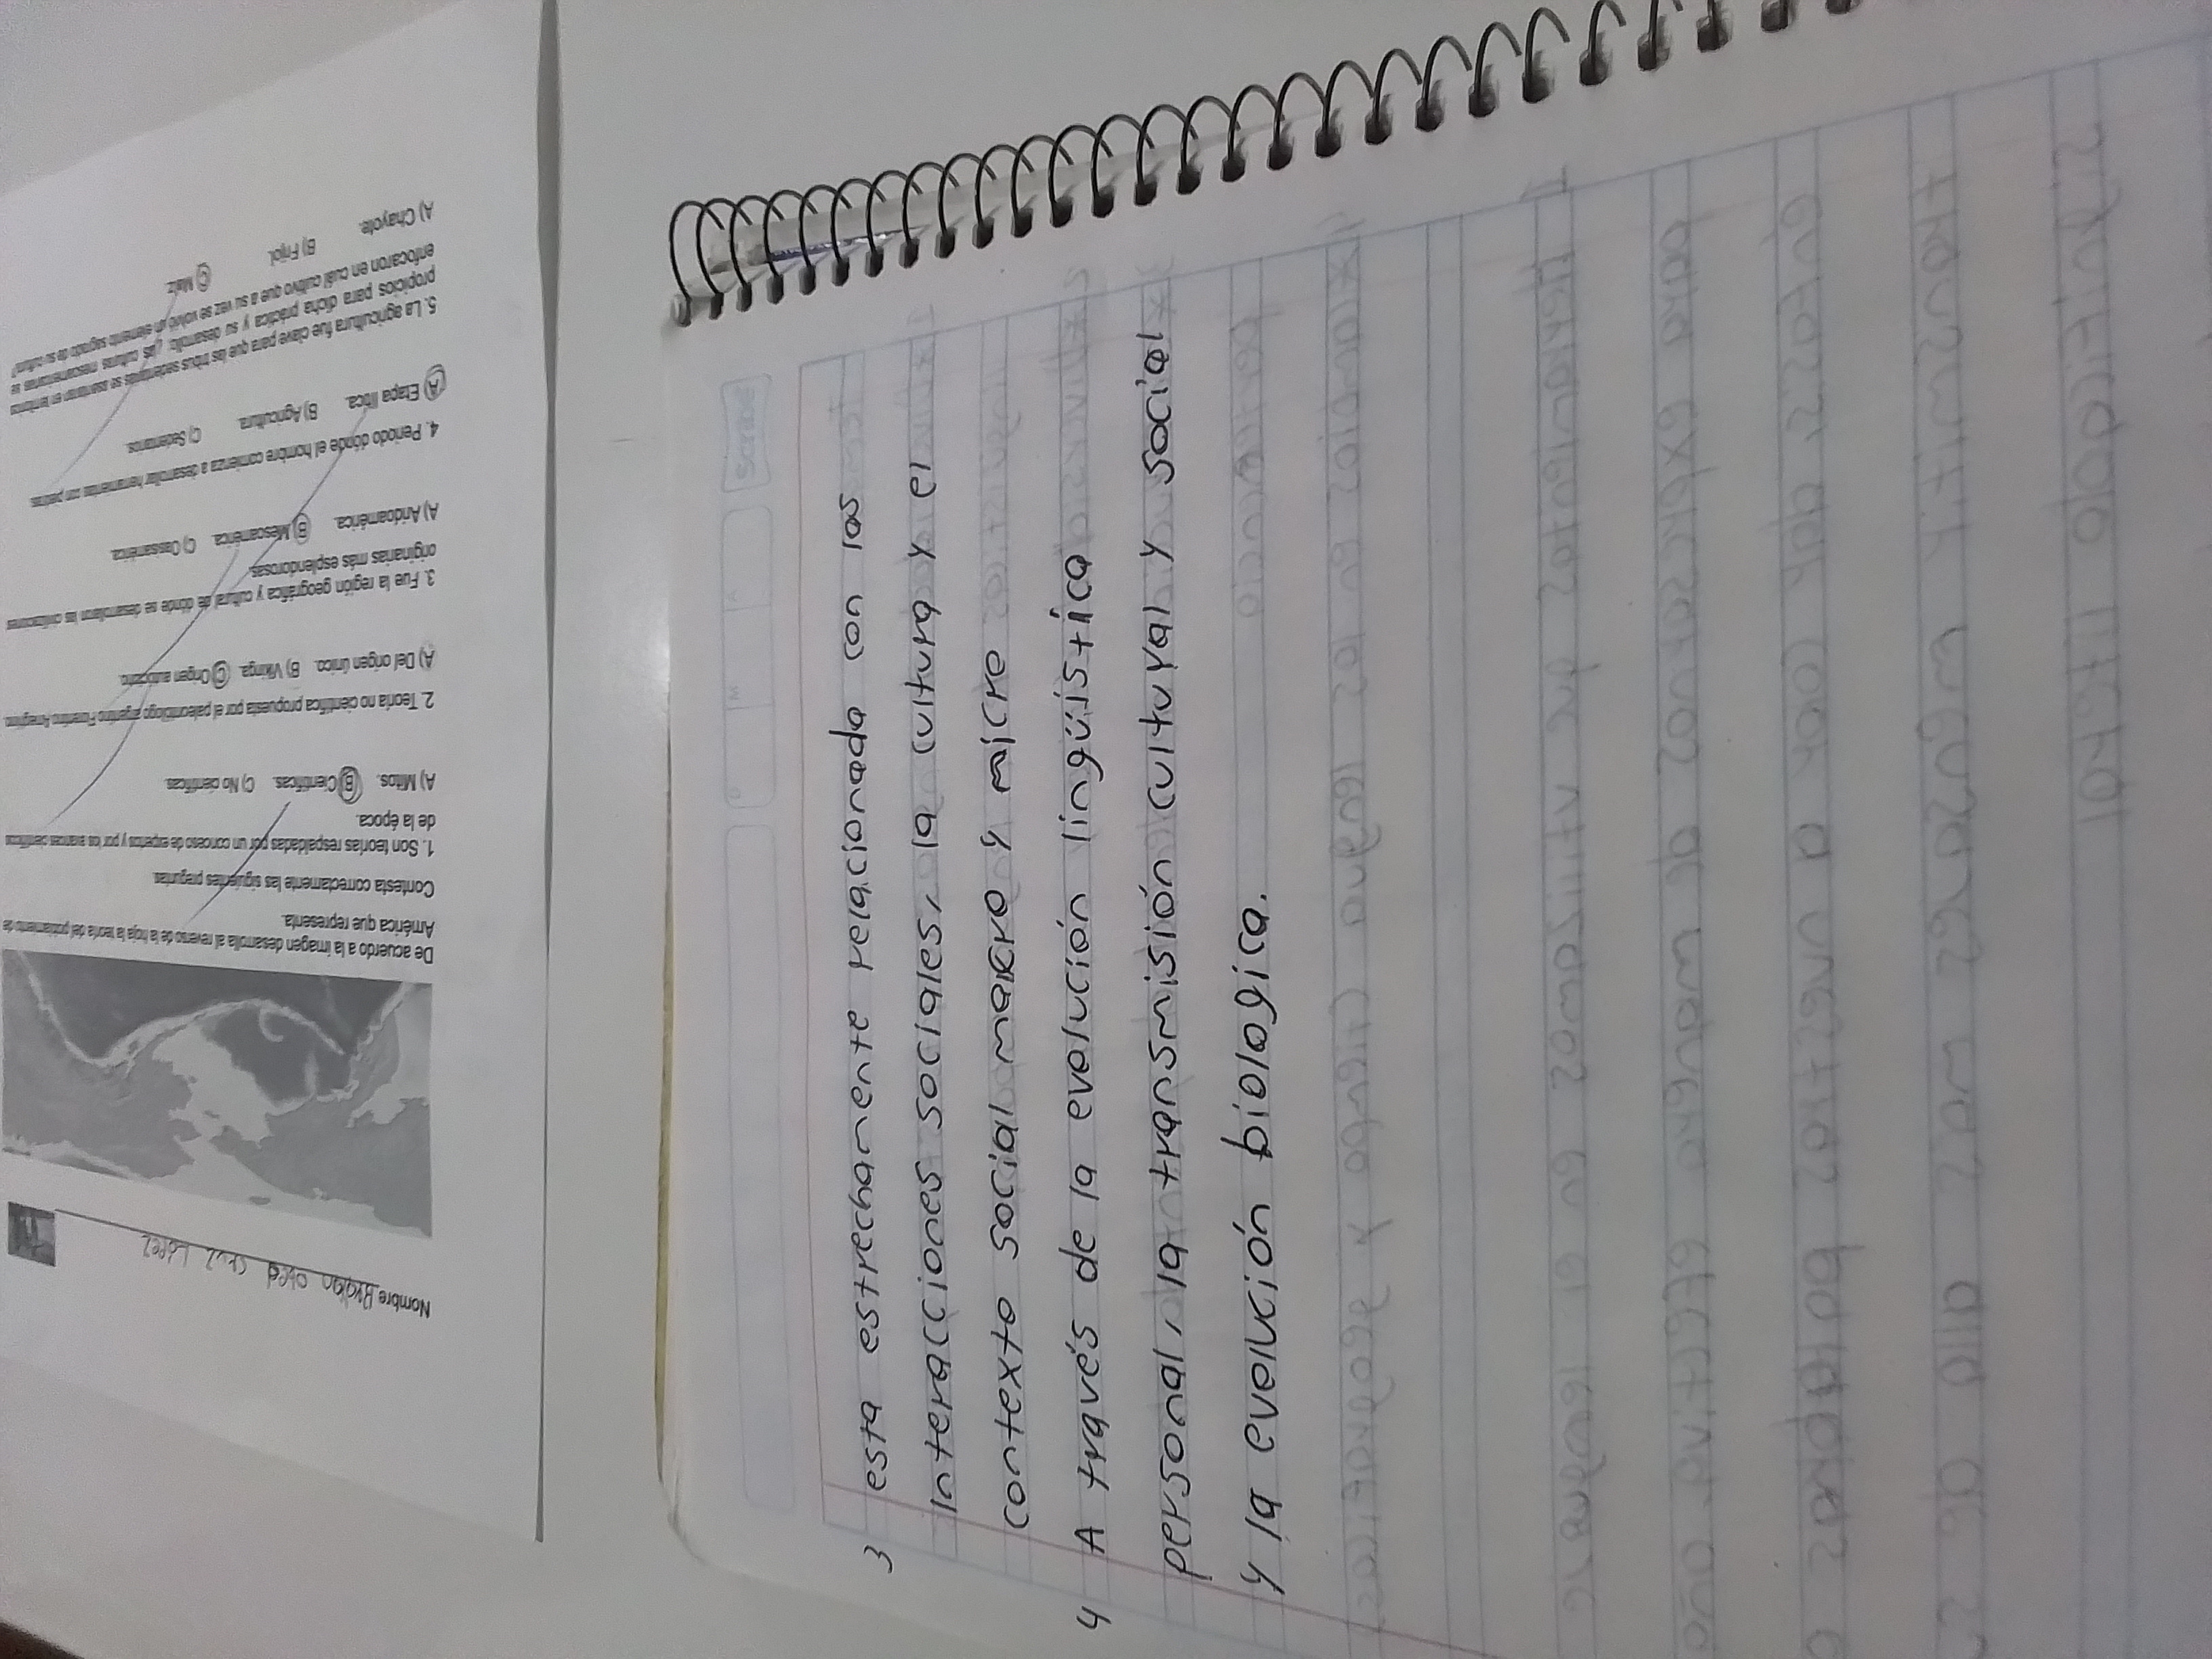 3 esta estrechamente relacionada con las
interacciones sociales, la cultura y el
contexto social macro y micre
4 A través de la evelución lingüística
personal, la transmisión cultural y social
y la evelución biologica.
Scribe
Nombre
Cruz López
De acuerdo a la imagen desarrolla al reverso de la hoja la teoría del poblamiento de
América que representa.
Contesta correctamente las siguientes preguntas
1. Son teorías respaldadas por un conceso de expertos y por los avances científicos
de la época.
A) Mitos. B) Científicas. C) No científicas.
2. Teoría no científica propuesta por el paleontólogo argentino Florentino Ameghino.
A) Del origen único. B) Vikinga. C) Origen autóctono.
3. Fue la región geográfica y cultural de dónde se desarrollaron las civilizaciones
originarias más esplendorosas.
A) Aridoamérica. B) Mesoamérica. C) Oasisamérica.
4. Periodo dónde el hombre comienza a desarrollar herramientas con piedras.
A) Etapa lítica. B) Agricultura. C) Sedentarios.
5. La agricultura fue clave para que las tribus sedentarias se asentaran en territorios
propicios para dicha práctica y su desarrollo, ¿las culturas mesoamericanas se
enfocaron en cuál cultivo que a su vez se volvió un elemento sagrado de su cultura?
A) Chayote. B) Frijol. C) Maíz.